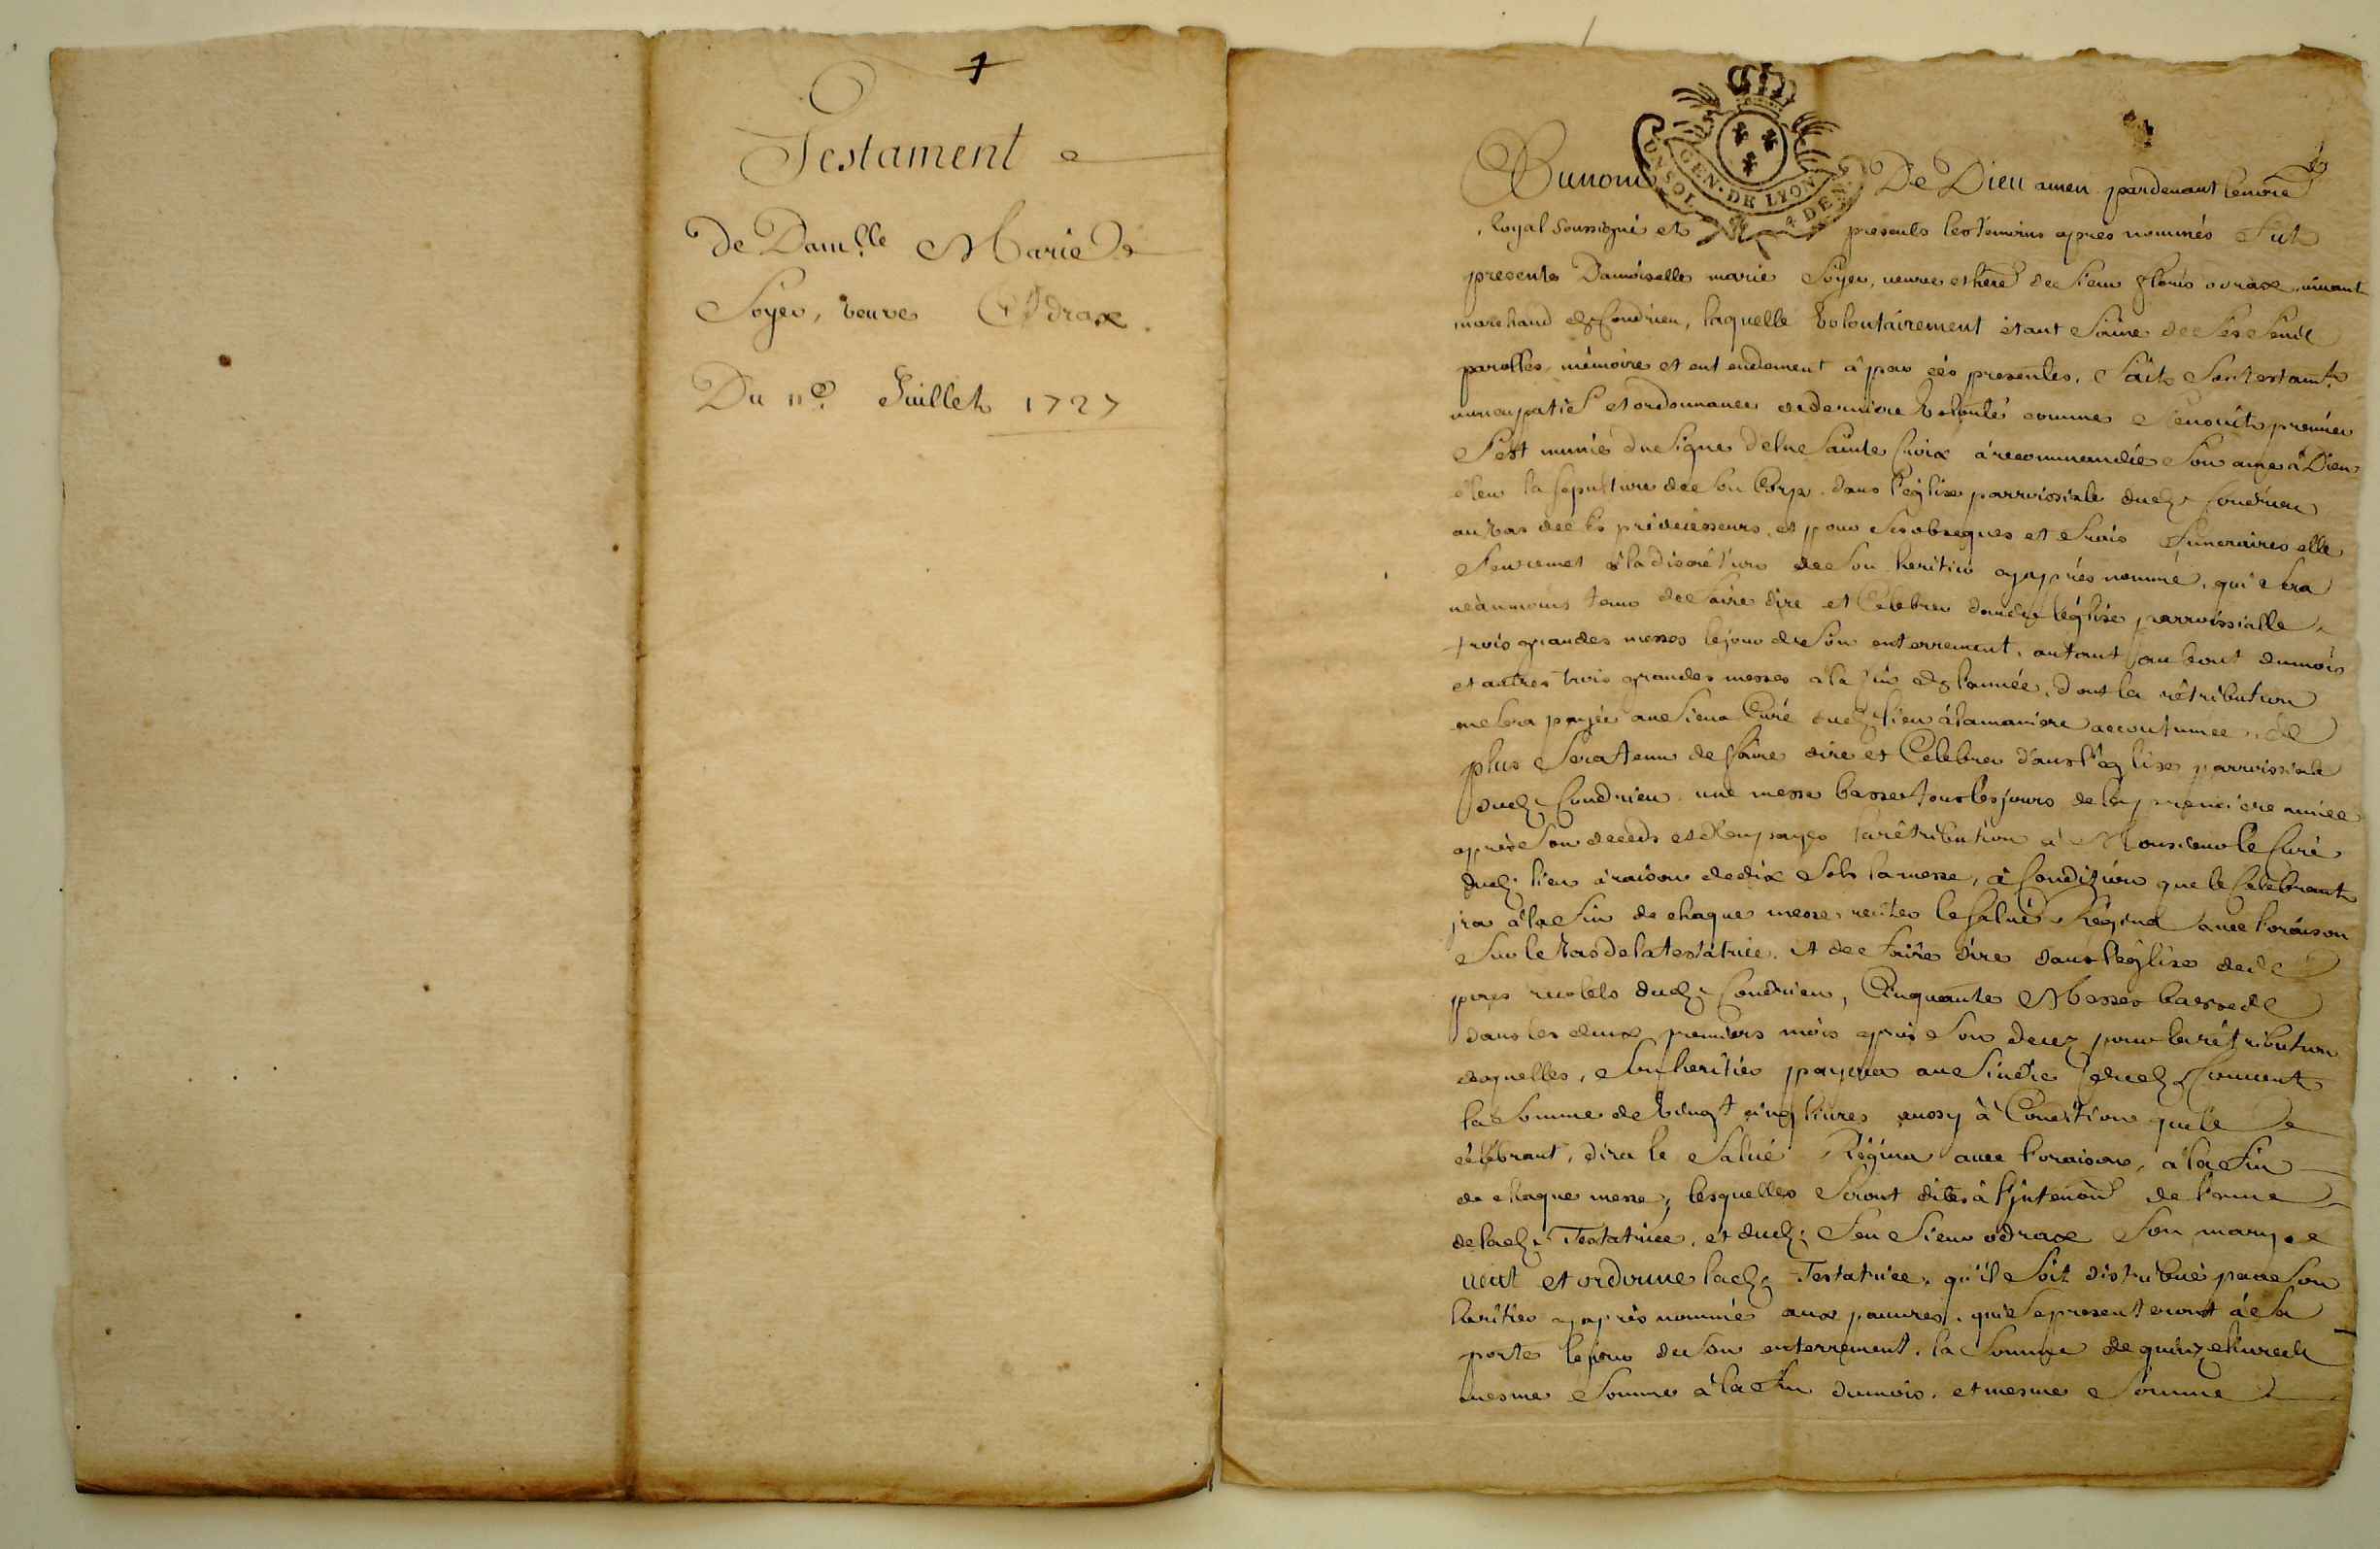 1
Testament
De Dam.lle Marie
Soyer, veuve Odrax.
Du 11e. Juillet 1727
GEN. DE LYON
UN SOL 4 DEN
Au nom De Dieu amen pardevant le no.re
Royal soussigné et presents les temoins apres nommés fut
presente Damoiselle marie Soyer, veuve et here. de sieur floris odrax, vivant
marchand de Condrieu, laquelle volontairement étant saine de ses sens
parolles, mémoire et entendement à par ces presentes, fait son testamt.
nuncupatif et ordonnance de derniere volonté comme s'ensuit, premier
s'est munie du signe de la sainte Croix a recommandée son ame à Dieu
eleu la sepulture de son Corps dans l'église parroissiale dud. Condrieu
au vas de ses prédecesseurs, et pour ses obseques et frais funeraires elle
s'en remet à la discrétion de son heritier cy après nommé, qui sera
néanmoins tenu de faire dire et Celebrer dans lad. église parroissialle
trois grandes messes le jour de son enterrement, autant au bout du mois
et autres trois grandes messes à la fin de l'année, dont la rétribution
sera payée au sieur Curé dud. lieu à la maniere accoutumée, de
plus sera tenu de faire dire et Celebrer dans l'église parroissiale
dud. Condrieu une messe basse tous les jours de la premiere année
après son deceds et d'en payer la rétribution à Monsieur le Curé
dud. lieu à raison de dix sols la messe, à Condition que le Célébrant
ira à la fin de chaque messe reciter le Salué Régina avec l'oraison
sur le vas de la testatrice. et de faire dire dans l'église des
peres recolets dud. Condrieu, Cinquante Messes basses
dans les deux premiers mois après son decez pour la rétribution
desquelles, son heritier payera au sindic dud. Couvent
la somme de vingt cinq livres aussy à Condition que le
célébrant, dira le Salué Régina avec l'oraison, à la fin
de chaque messe, lesquelles seront dites à l'jntention de l'ame
de lad. Testatrice, et dud. feu sieur odrax son mary
veut et ordonne lad. Testatrice, qu'il soit distribué par son
héritier cy après nommé aux pauvres, qui se presenteront à sa
porte le jour de son enterrement, la somme de quinze livres
mesme somme à la fin du mois, et mesme somme